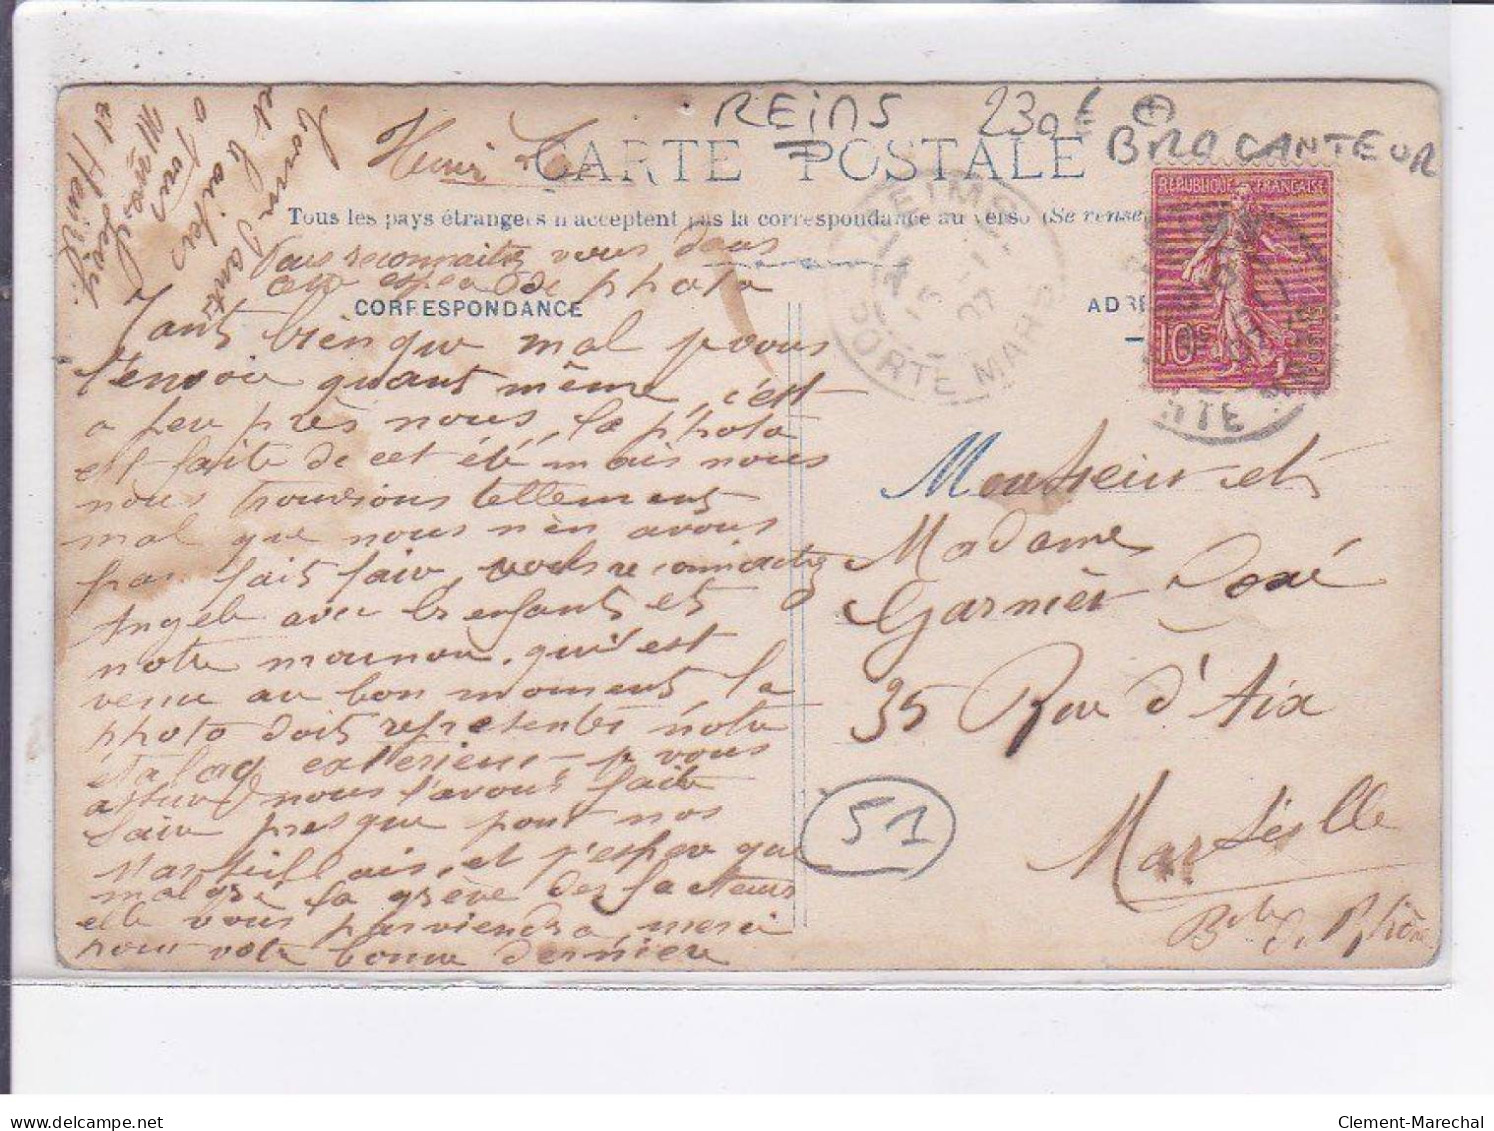 REIMS 230€
BROCANTEUR
CARTE POSTALE
Henri
Tous les pays étrangers n'acceptent pas la correspondance au verso (Se rense
Vous reconnaitrez vous dans
de photo
CORRESPONDANCE
ADRE
REIMS
PORTE MARS
07
REPUBLIQUE FRANÇAISE
10c
POSTES
RTE
Tant bien que mal je vous
l'envoie quant même, c'est
a peu près nous, la photo
est faite de cet été mais nous
nous trouvions tellement
mal que nous n'en avons
pas fait fair, vous reconnaitrez
Angele avec les enfants et
notre mounou. qui est
venu au bon moment, la
photo doit representer notre
étalage exterieur je vous
assure nous l'avons faite
faire presque pour nos
Marseillais, et j'esper que
malgré la grève des facteurs
elle vous parviendra, merci
pour votre bonne dernière
bonne santé
et baisers
a tous
et Henri
Monsieur et
Madame
Garnier Rosé
35 Rue d'Aix
Marseille
B. du Rhône
51
delcampe.net
Clement-Marechal